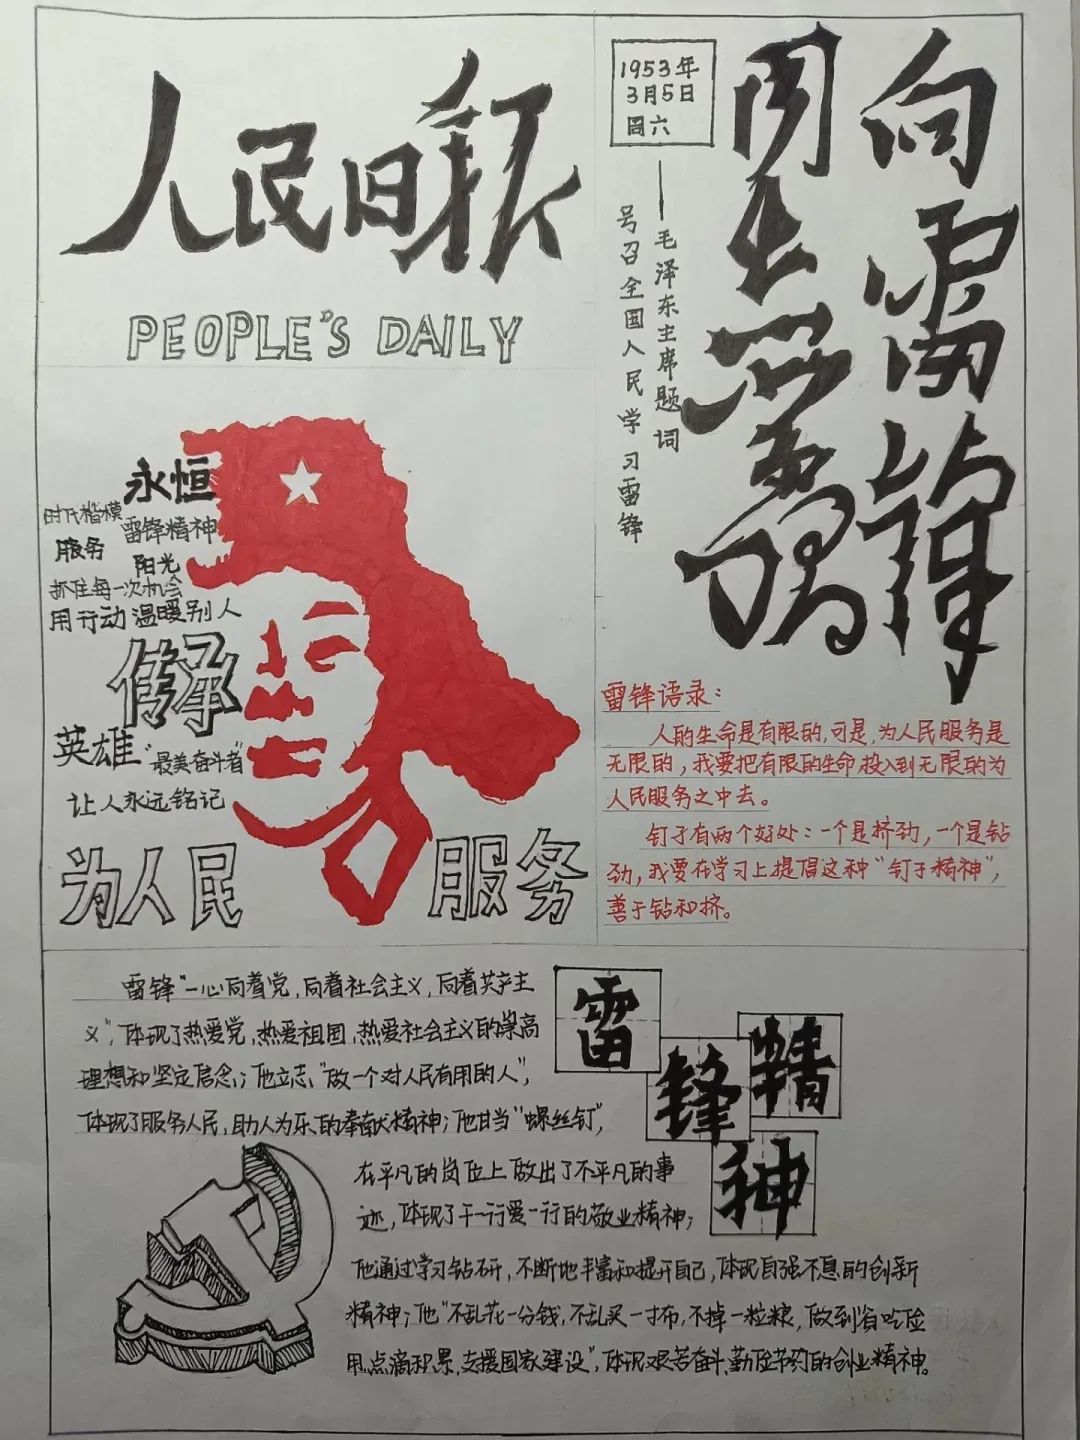 人民日报
PEOPLE'S DAILY
1953年
3月5日
周六
向雷锋
同志学习
——毛泽东主席题词
号召全国人民学习雷锋
永恒
时代楷模
雷锋精神
服务
阳光
抓住每一次机会
用行动温暖别人
传承
英雄
"最美奋斗者"
让人永远铭记
为人民 服务
雷锋语录：
人的生命是有限的，可是，为人民服务是
无限的，我要把有限的生命，投入到无限的为
人民服务之中去。
钉子有两个好处：一个是挤劲，一个是钻
劲，我要在学习上提倡这种"钉子精神"，
善于钻和挤。
雷锋"一心向着党，向着社会主义，向着共产主
义"，体现了热爱党，热爱祖国，热爱社会主义的崇高
理想和坚定信念；他立志"做一个对人民有用的人"，
体现了服务人民，助人为乐的奉献精神；他甘当"螺丝钉"，
在平凡的岗位上做出了不平凡的事
迹，体现了干一行爱一行的敬业精神；
他通过学习钻研，不断地丰富和提升自己，体现自强不息的创新
精神；他"不乱花一分钱，不乱买一寸布，不掉一粒粮，做到省吃俭
用，点滴积累，支援国家建设"，体现艰苦奋斗、勤俭节约的创业精神。
雷
锋
精
神